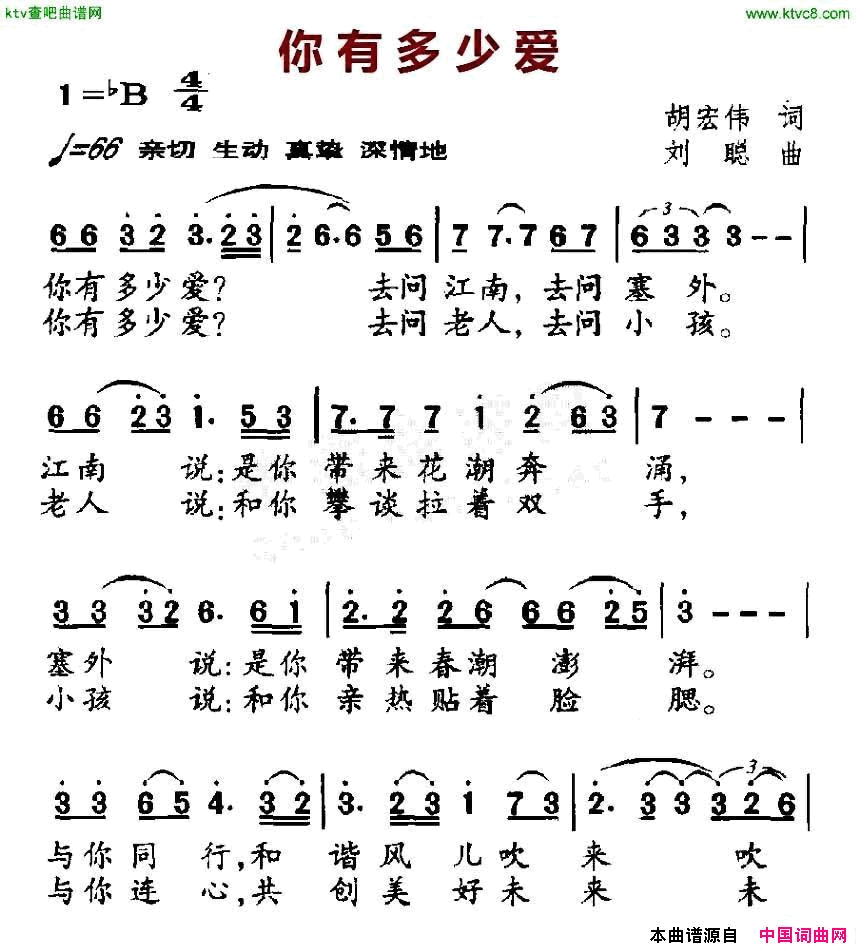 ktv查吧曲谱网
www.ktvc8.com
你有多少爱
1=♭B 4/4
胡宏伟 词
♩=66 亲切 生动 真挚 深情地
刘聪 曲
6 6 3 2 3. 2 3 | 2 6. 6 5 6 | 7 7. 7 6 7 | 6 3 3 3 - - |
你有多少爱? 去问江南,去问塞外。
你有多少爱? 去问老人,去问小孩。
6 6 2 3 1. 5 3 | 7. 7 7 1 2 6 3 | 7 - - - |
江南 说:是你带来花潮奔涌,
老人 说:和你攀谈拉着双手,
3 3 3 2 6. 6 1 | 2. 2 2 6 6 6 2 5 | 3 - - - |
塞外 说:是你带来春潮澎湃。
小孩 说:和你亲热贴着脸腮。
3 3 6 5 4. 3 2 | 3. 2 3 1 7 3 | 2. 3 3 3 2 6 |
与你同行,和谐风儿吹来 吹
与你连心,共创美好未来 未
本曲谱源自 中国词曲网